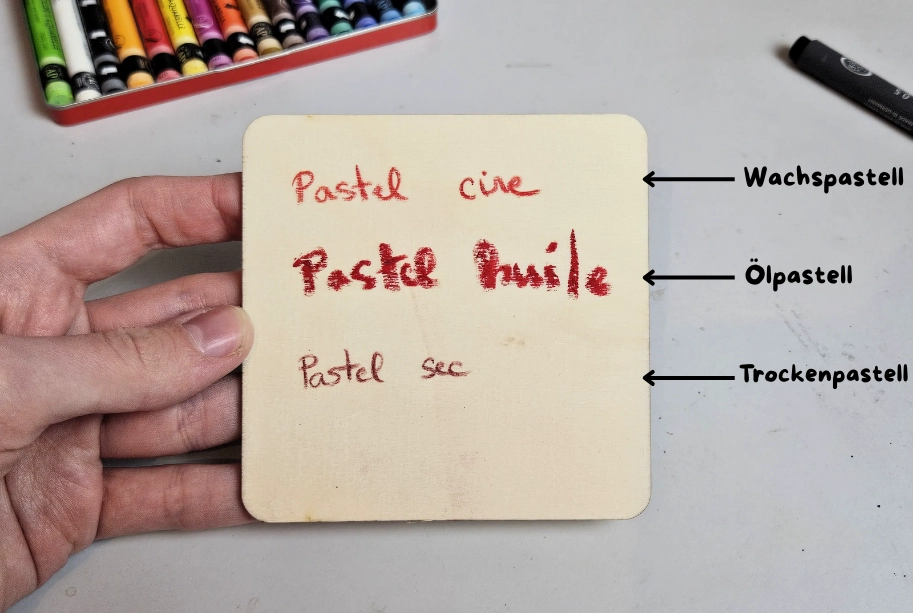 Pastel cire
Wachspastell
Pastel huile
Ölpastell
Pastel sec
Trockenpastell
0.5